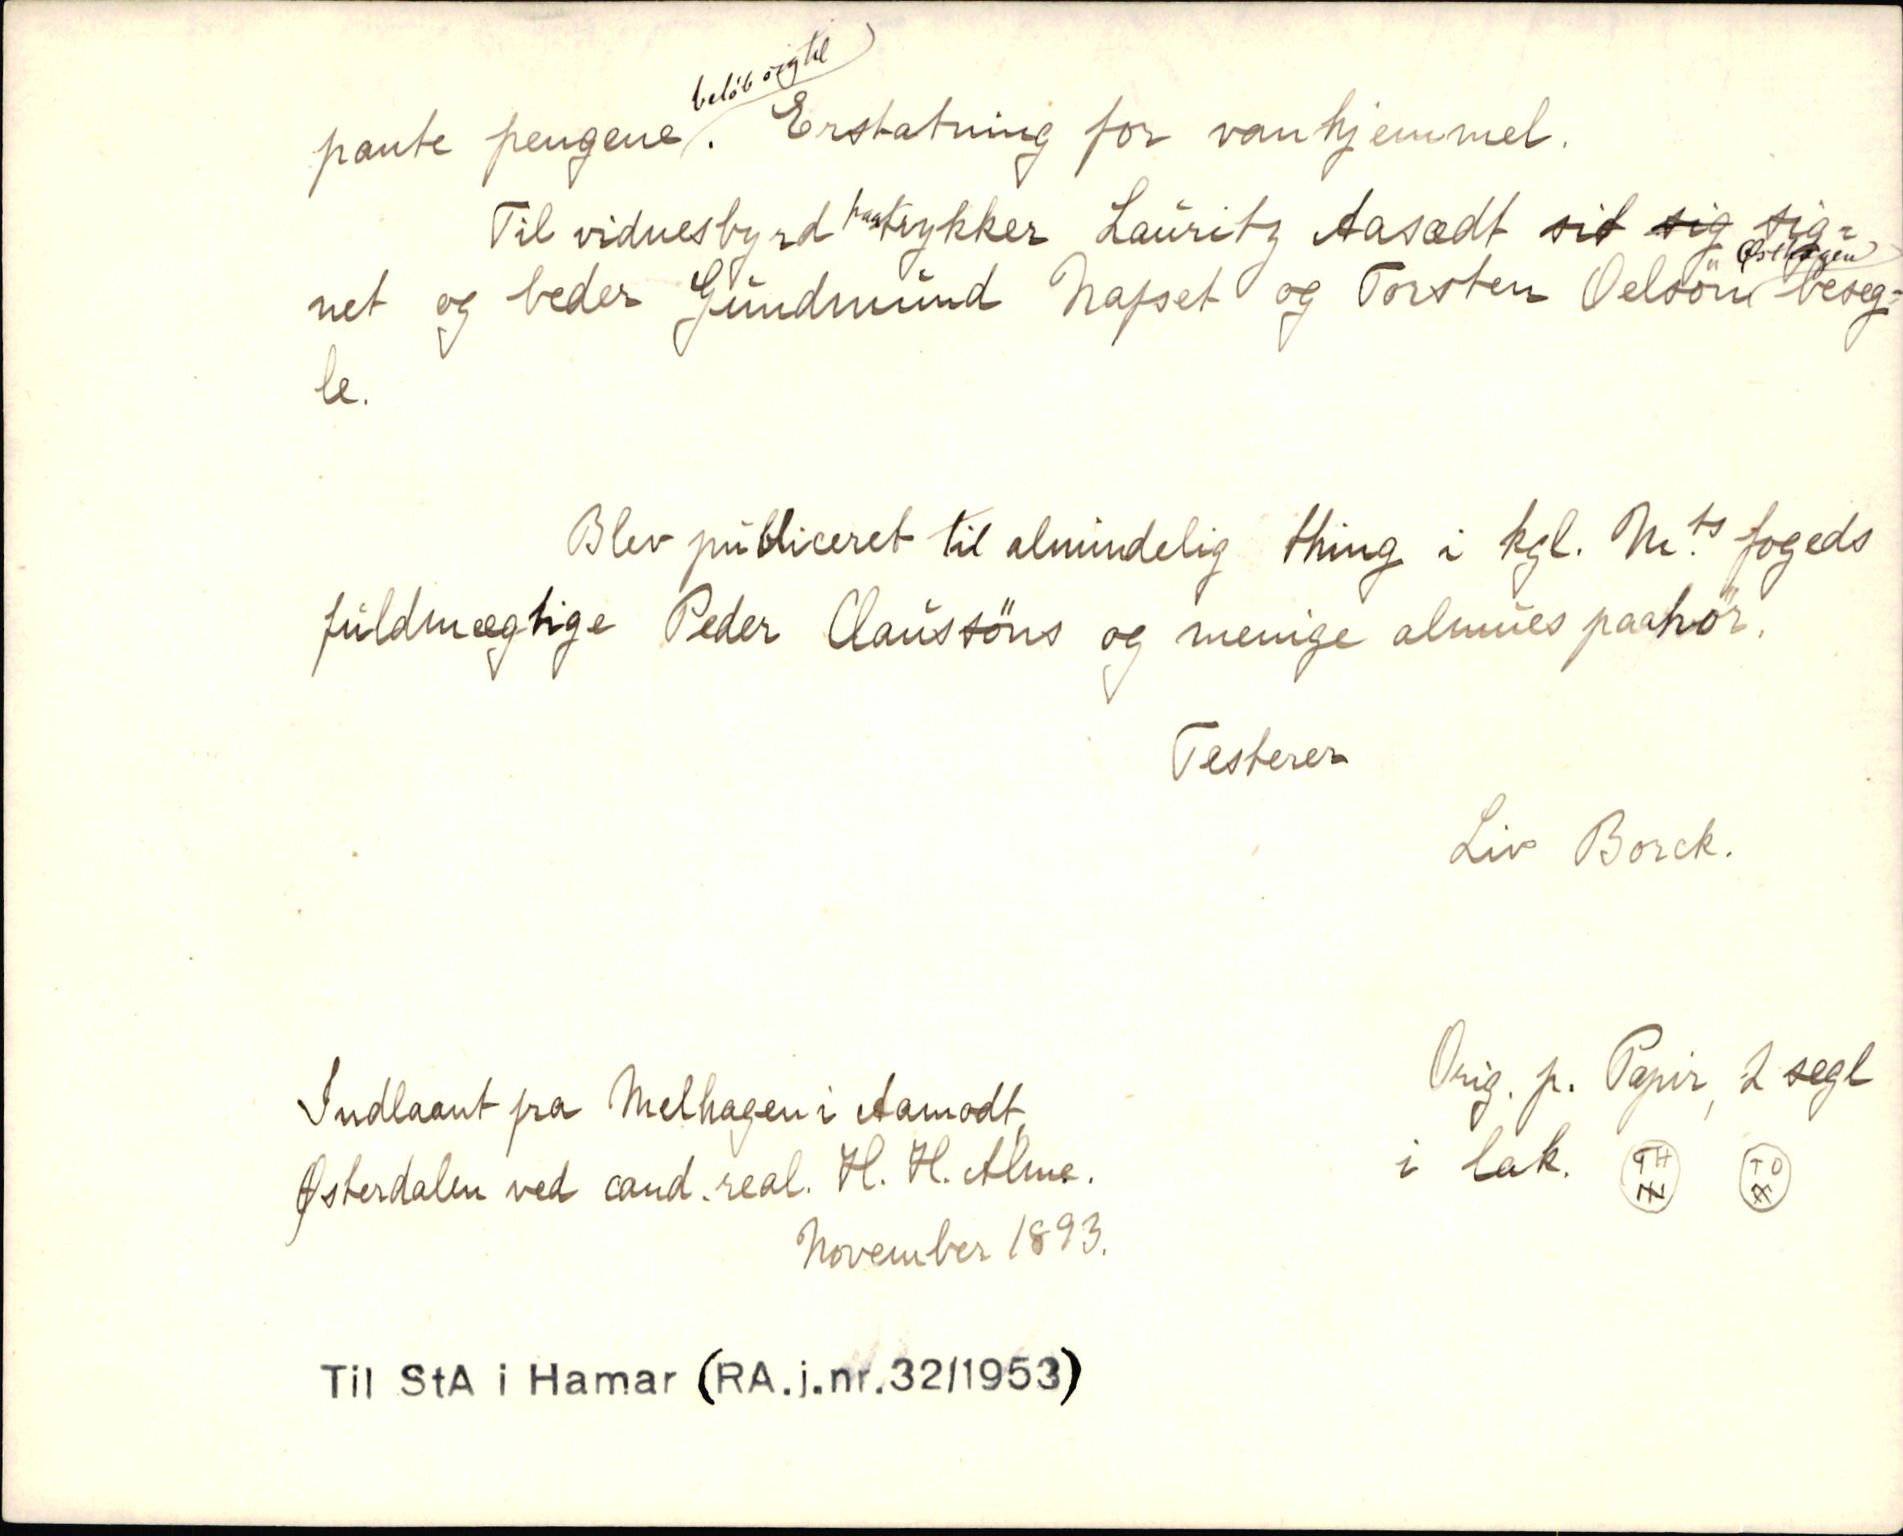 beløb sig til
pante pengene. Erstatning for vanhjemmel.
Til vidnesbyrd paatrykker Lauritz Aasædt sit sig sig-
Østhagen
net og beder Gundmund Nafset og Torsten Oelsön beseg-
le.
Blev publiceret til almindelig thing i kgl. M.ts fogeds
fuldmægtige Peder Claussöns og menige almues paahør.
Testerer
Liv Borck.
Indlaant fra Melhagen i Aamodt,
Østerdalen ved cand. real. H. H. Alme.
November 1893.
Orig. p. Papir, 2 segl
i lak. TH TO
Til StA i Hamar (RA.j.nr.32/1953)